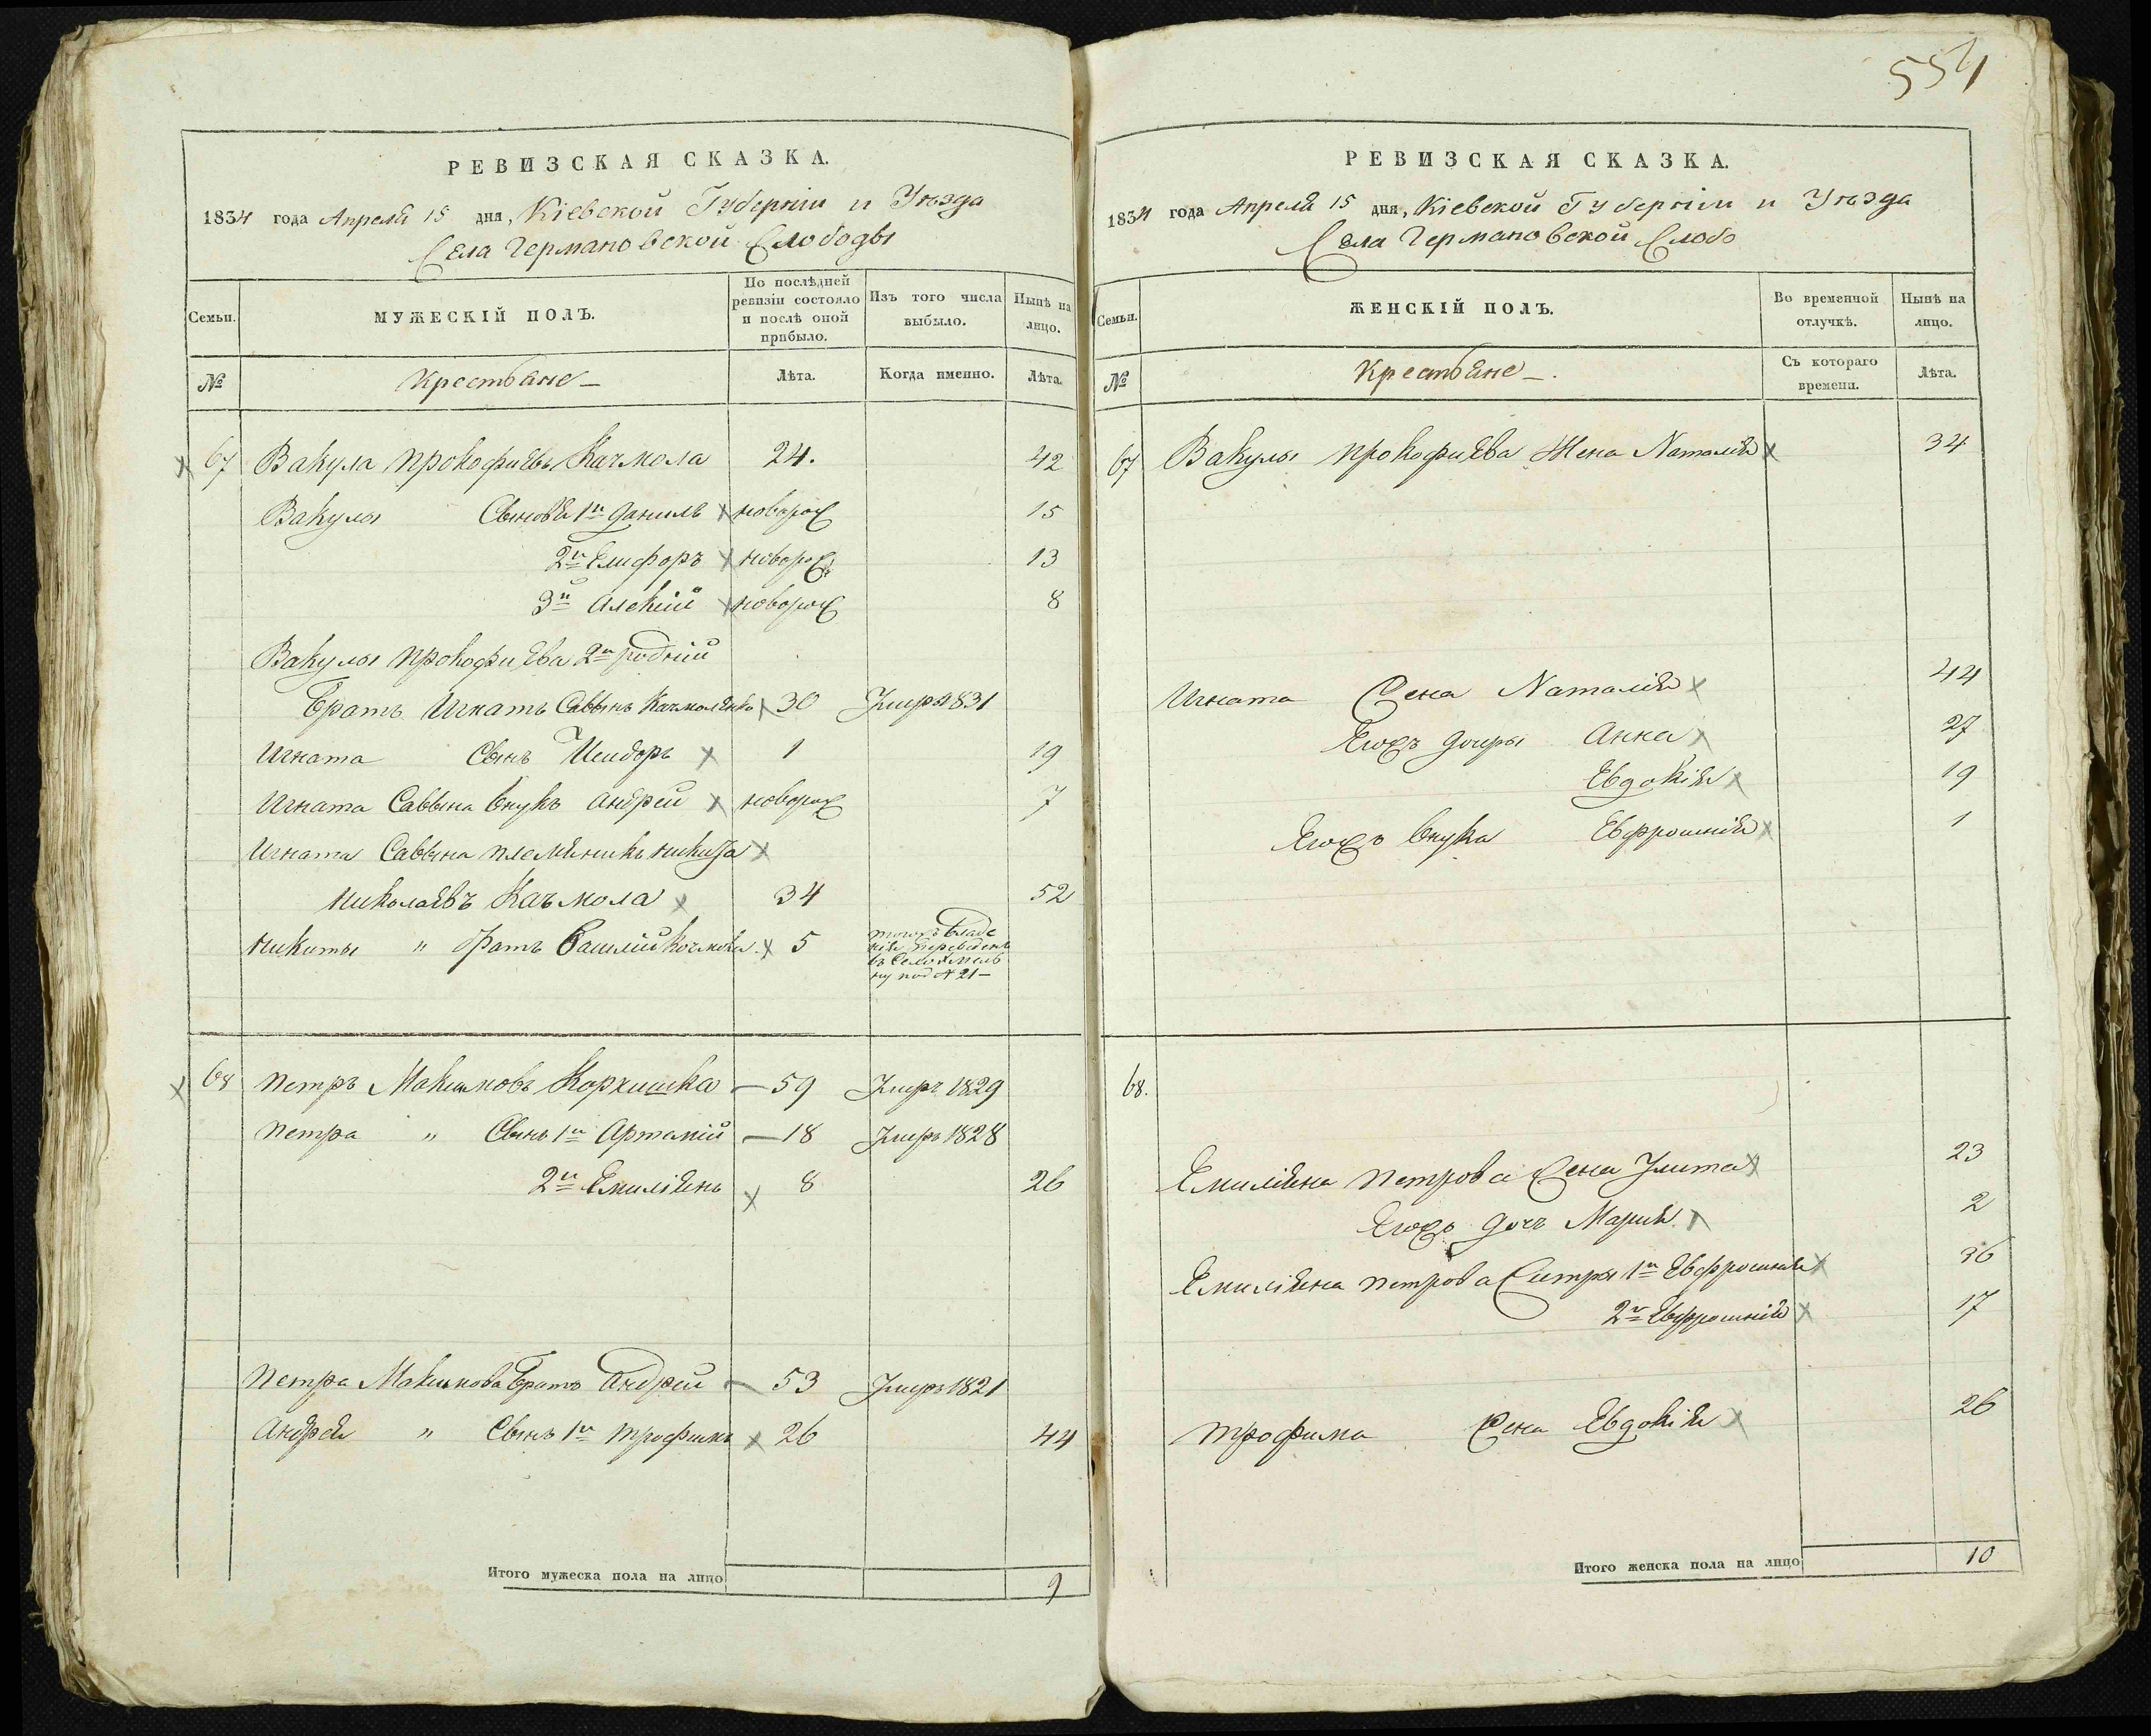 РЕВИЗСКАЯ СКАЗКА.
1834 года Апреля 15 дня, Кіевской Губерніи и Уѣзда
Села Германовской Слободы
Семьи.
МУЖЕСКІЙ ПОЛЪ.
По послѣдней ревизіи состояло и послѣ оной прибыло.
Изъ того числа выбыло.
Нынѣ на лицо.
№
Крестьяне
Лѣта.
Когда именно.
Лѣта.
67 Вакула Прокофиевъ Качмола 24. 42
Вакулы Сыновья 1й Данилъ новорож 15
2й Елисфоръ новорож 13
3й Алексій новорож 8
Вакулы Прокофиева 2й родній
Братъ Игнатъ Саввинъ Качмоленко 30 Умръ 1831
Игната Сынъ Исидоръ 1 19
Игната Саввина внукъ Андрей новорож 7
Игната Саввина племянникъ Никита
Николаевъ Качмола 34 52
Никиты " братъ Василій Качмола 5
переведенъ
под № 21
68 Петръ Максимовъ Коржишка 59 Умръ 1829
Петра " Сынъ 1й Артемій 18 Умръ 1828
2й Емиліянъ 8 26
Петра Максимова Братъ Андрей 53 Умръ 1821
Андрея " Сынъ 1й Трофимъ 26 44
Итого мужеска пола на лицо 9
554
РЕВИЗСКАЯ СКАЗКА.
1834 года Апреля 15 дня, Кіевской Губерніи и Уѣзда
Села Германовской Слобо
Семьи.
ЖЕНСКІЙ ПОЛЪ.
Во временной отлучкѣ.
Нынѣ на лицо.
№
Крестьяне
Съ котораго времени.
Лѣта.
67 Вакулы Прокофиева Жена Наталія 34
Игната Жена Наталія 44
Егожъ дочеры Анна 27
Евдокія 19
Егожъ внука Евфросинія 1
68.
Емиліяна Петрова Жена Улита 23
Егожъ дочъ Мария 2
Емиліяна Петрова Систры 1я Евфросинія 36
2я Евфросинія 17
Трофима Жена Евдокія 26
Итого женска пола на лицо 10